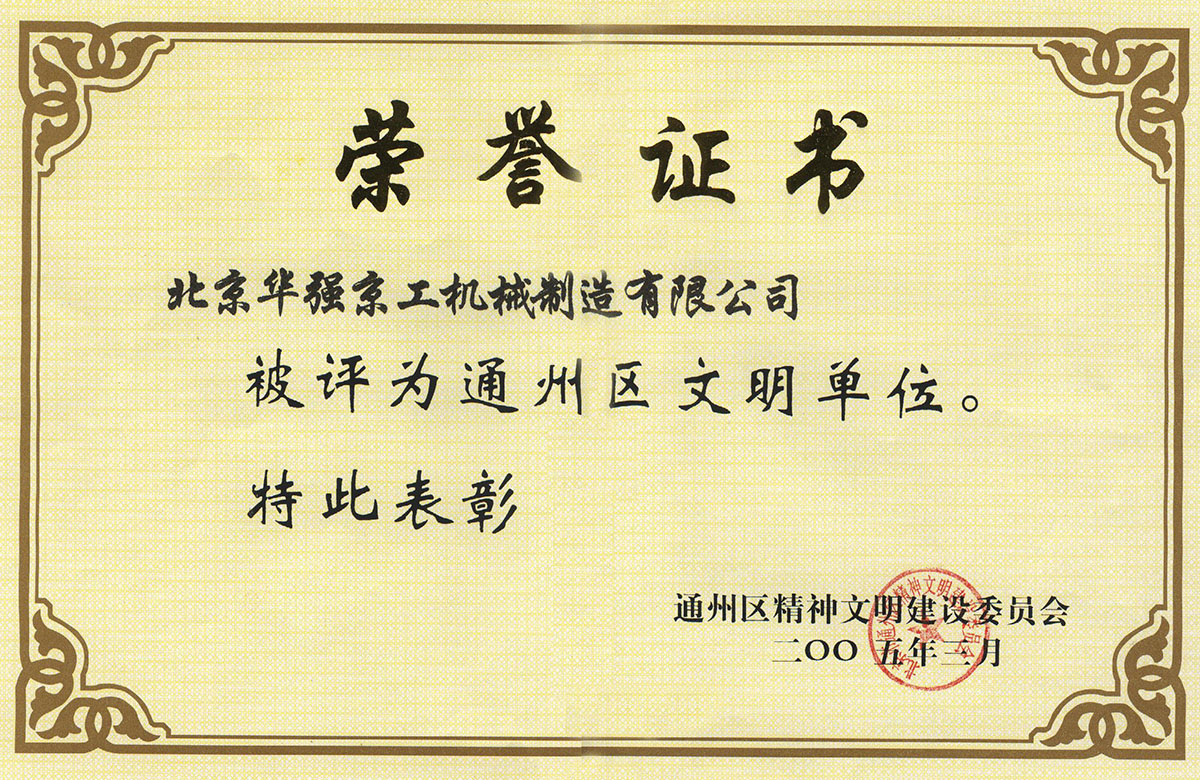 荣誉证书
北京华强京工机械制造有限公司
被评为通州区文明单位。
特此表彰
通州区精神文明建设委员会
二〇〇五年三月